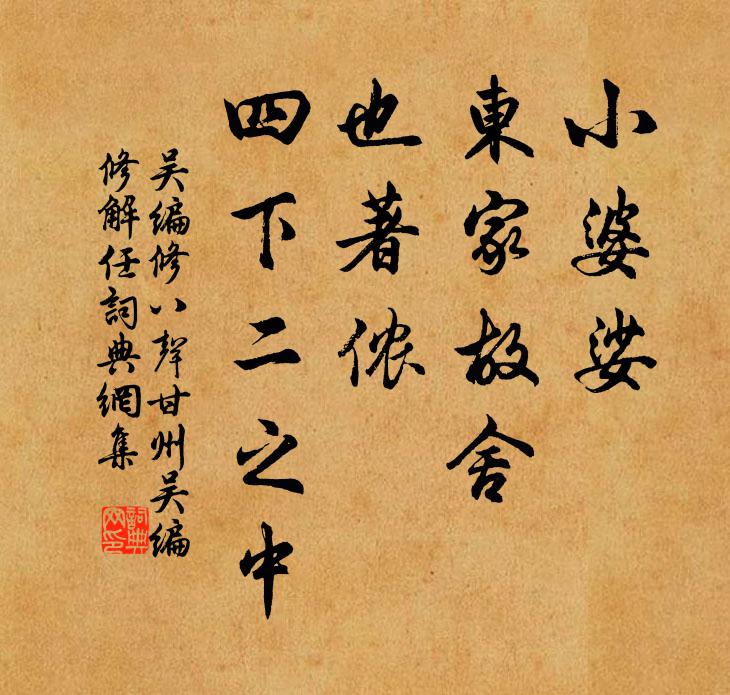 小婆娑
東家故舍
也著侬
四下二之中
吴編修八聲甘州吴編
修解任詞典網集
詞典
网印